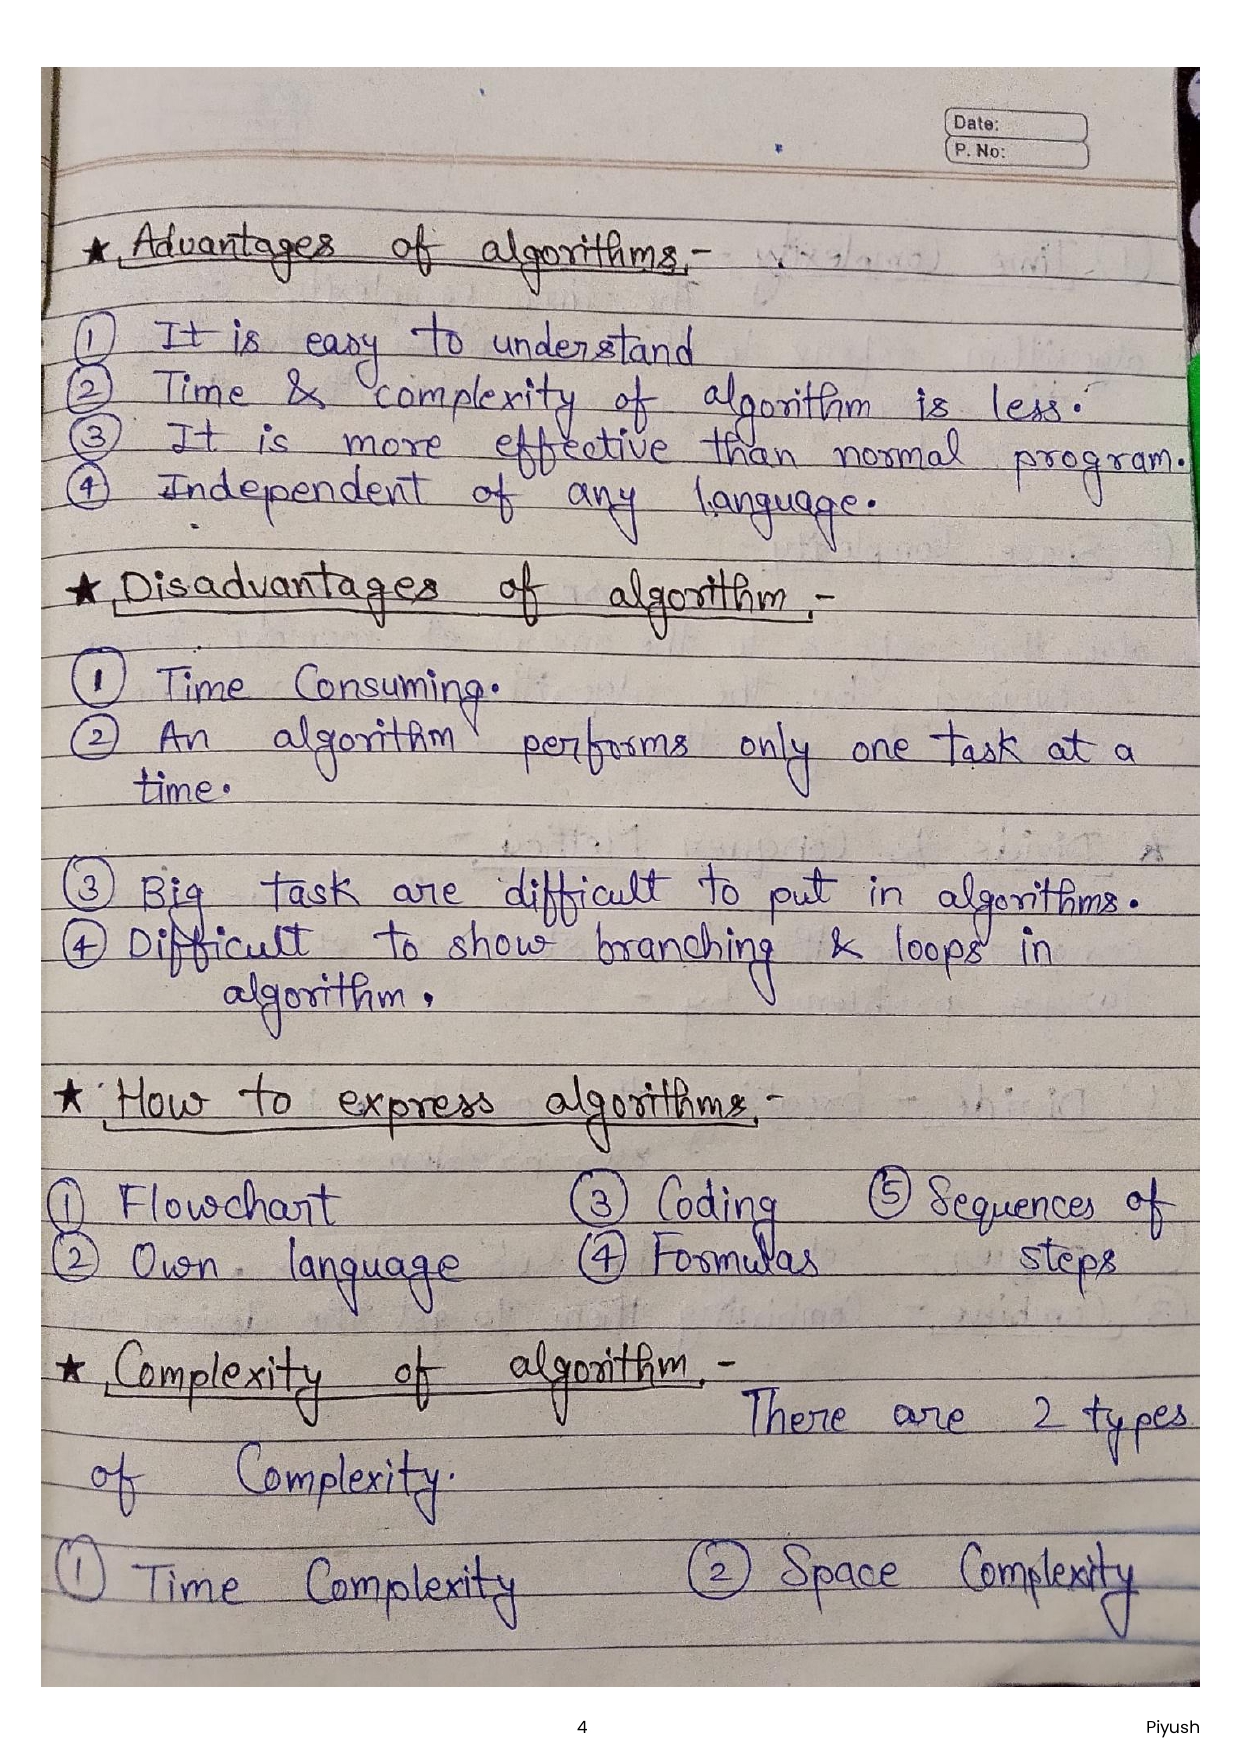 Date:
P. No:
★ Advantages of algorithms,-
① It is easy to understand
② Time & complexity of algorithm is less.
③ It is more effective than normal program.
④ Independent of any language.
★ Disadvantages of algorithm,-
① Time Consuming.
② An algorithm performs only one task at a
time.
③ Big task are difficult to put in algorithms.
④ Difficult to show branching & loops in
algorithm.
★ How to express algorithms,-
① Flowchart ③ Coding ⑤ Sequences of
② Own language ④ Formulas steps
★ Complexity of algorithm,-
There are 2 types
of Complexity.
① Time Complexity ② Space Complexity
4 Piyush